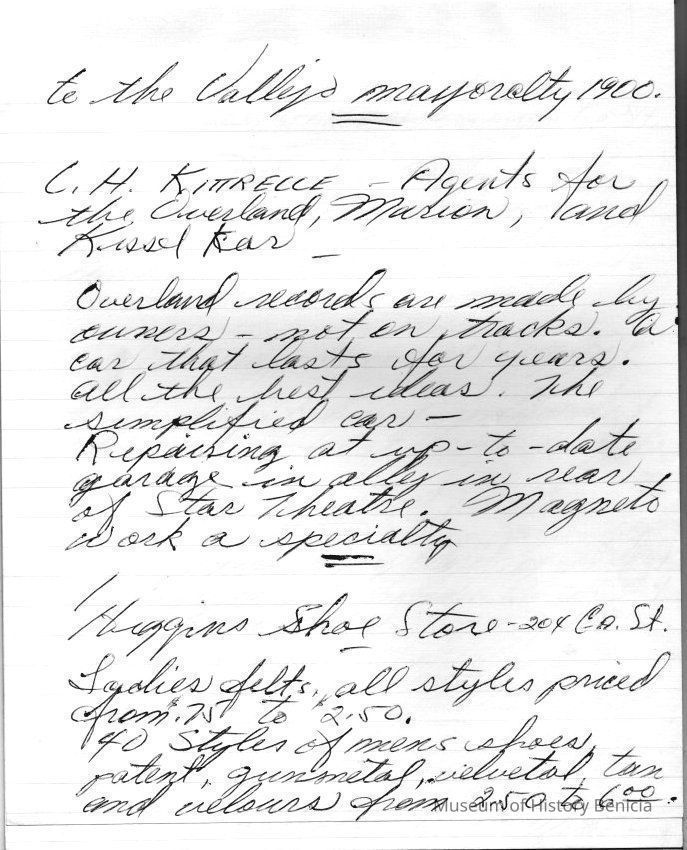 to the Vallejo mayoralty 1900.
C. H. KITTRELLE - Agents for
the Overland, Marion, and
Kissel Kar -
Overland records are made by
owners - not on tracks. A
car that lasts for years.
all the best ideas. The
simplified car -
Repairing at up-to-date
garage in alley in rear
of Star Theatre. Magneto
work a specialty
Huggins Shoe Store - 204 Ga. St.
Ladies felts, all styles priced
from .75 to $2.50.
40 Styles of mens shoes,
patent, gunmetal, velvetol, tan
and velours from 2.50 to 6.00.
Museum of History Benicia